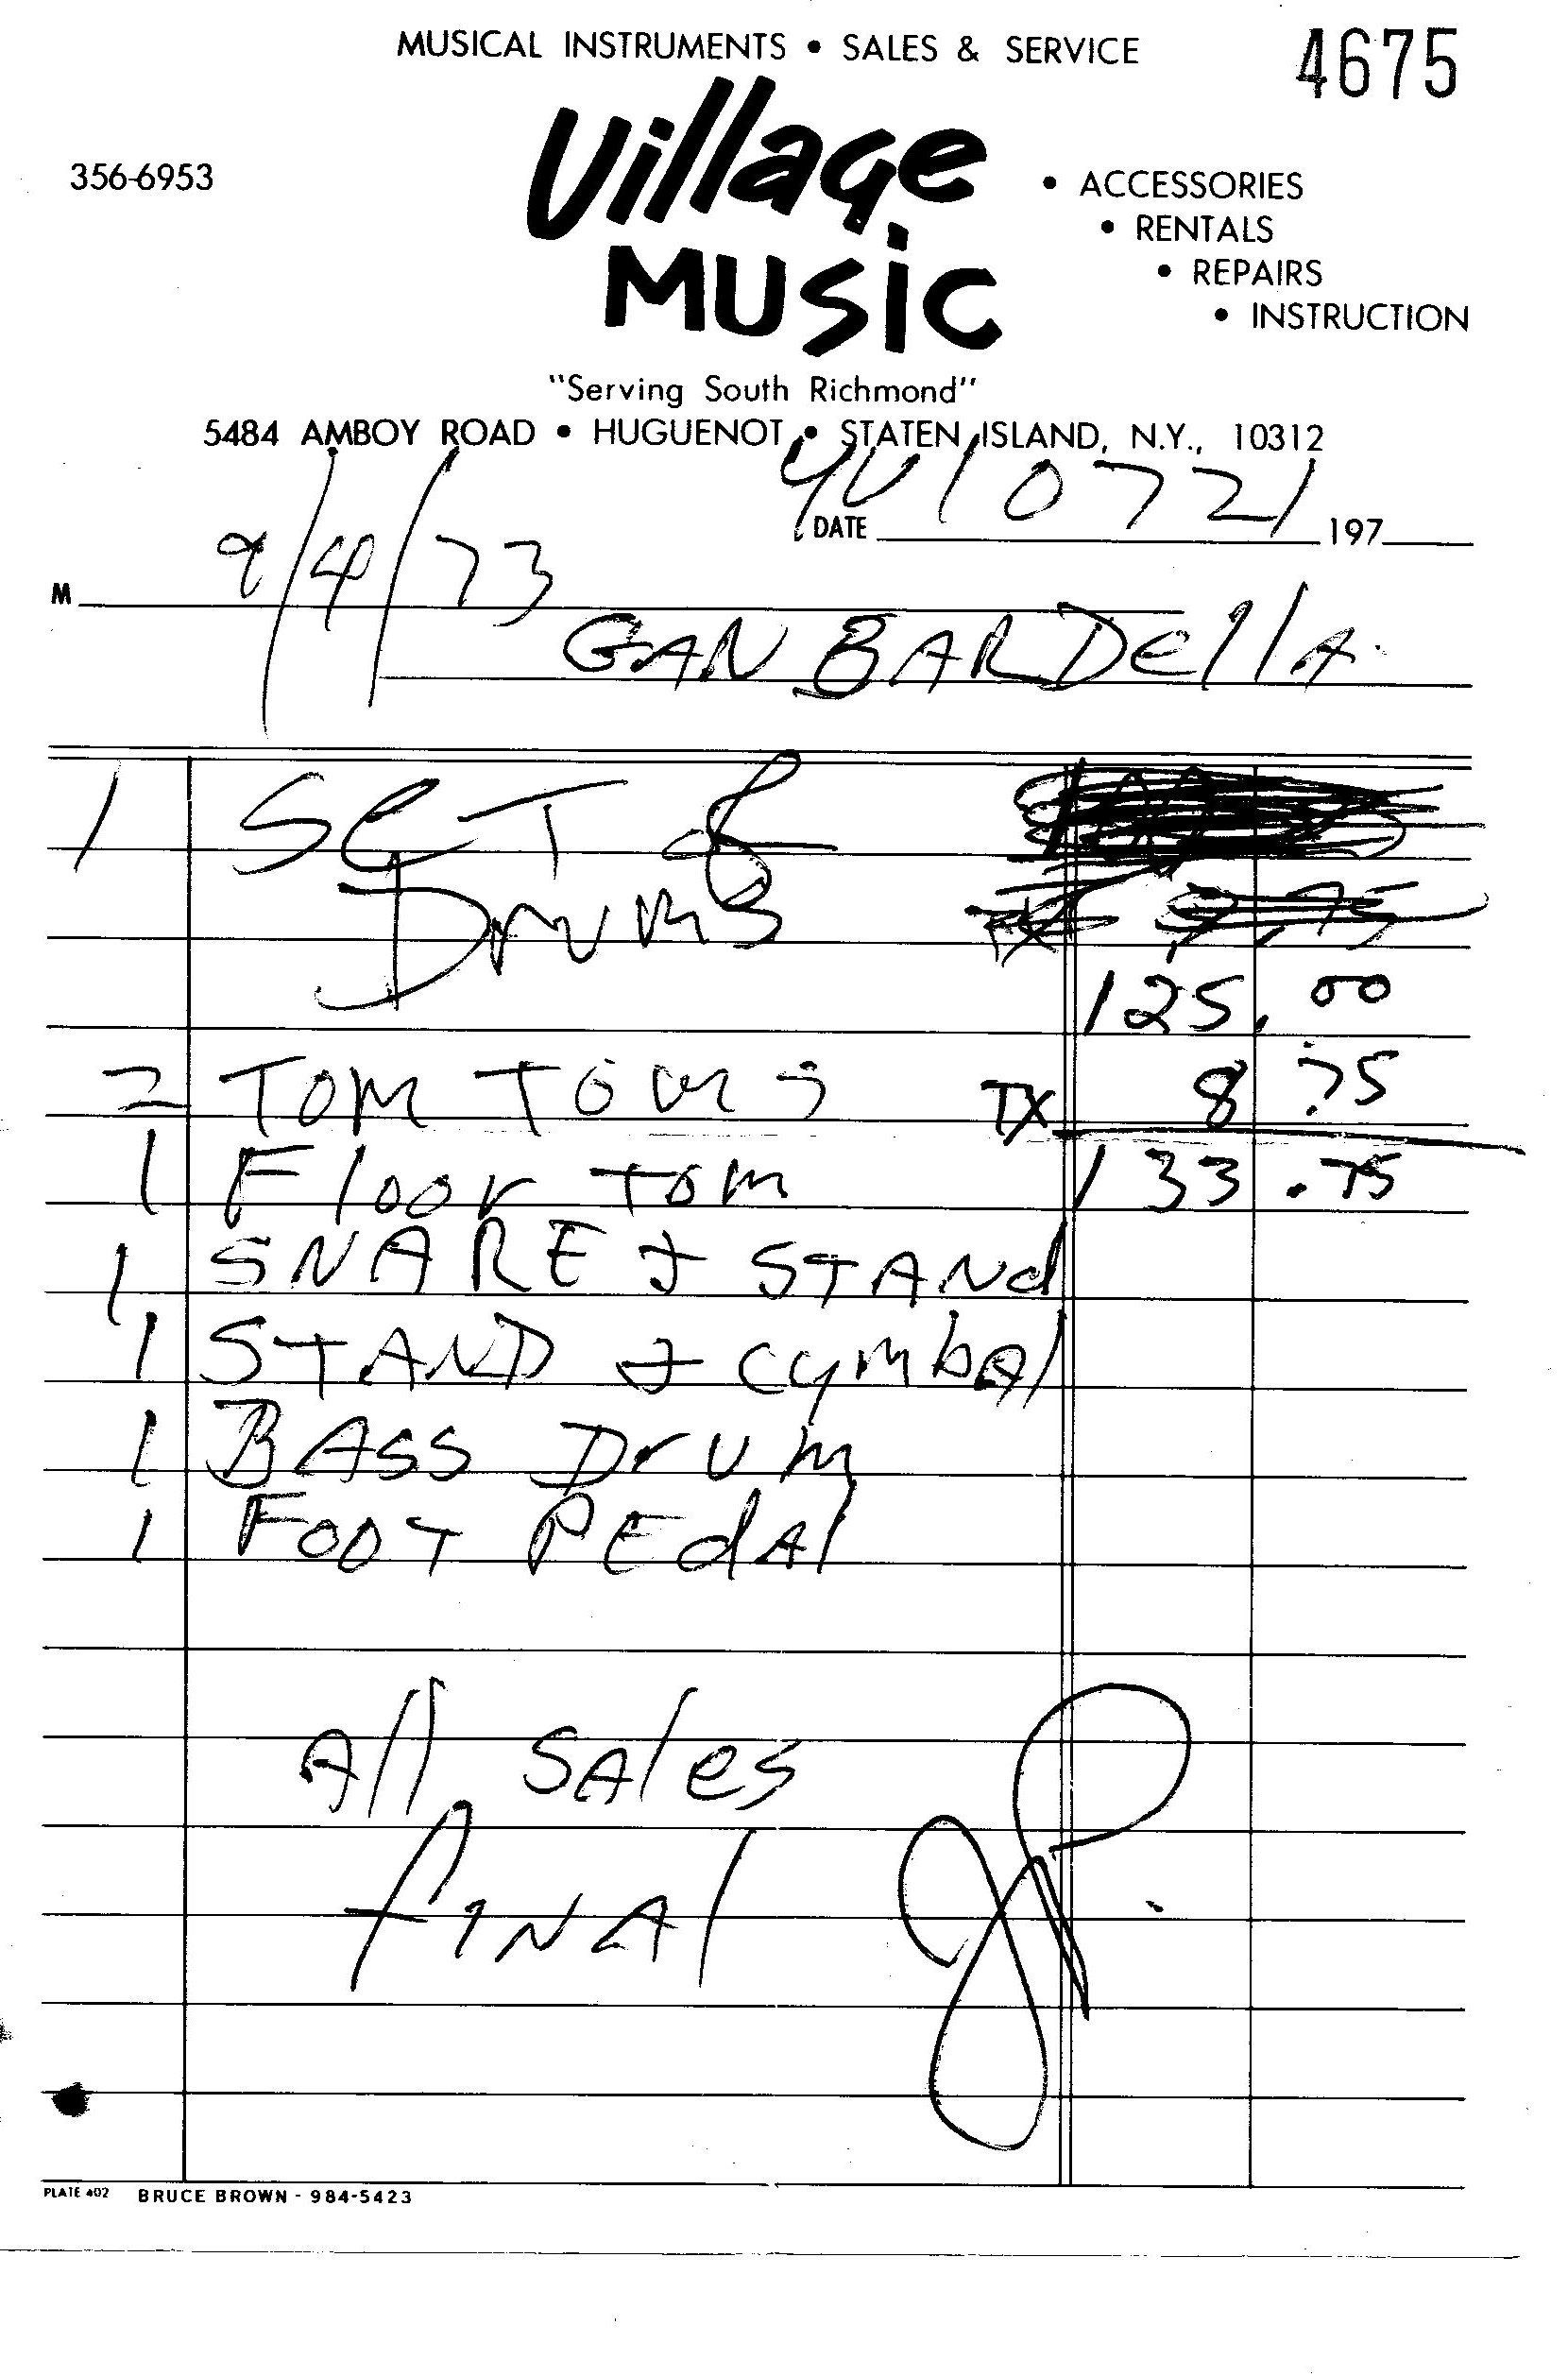 MUSICAL INSTRUMENTS • SALES & SERVICE 4675
356-6953
Village
MUSIC
• ACCESSORIES
• RENTALS
• REPAIRS
• INSTRUCTION
"Serving South Richmond"
5484 AMBOY ROAD • HUGUENOT • STATEN ISLAND, N.Y., 10312
YU 10721
DATE 197
M 9/4/73
GANBARDellA
1 SeT of
Drums TX
125.00
2 TOM TOMS TX 8.75
1 Floor Tom 133.75
1 SNARE + STANd
1 STAND + cymbAl
1 BASS DrUM
1 FOOT PEdAl
All SAles
fINAl
PLATE 402 BRUCE BROWN - 984-5423